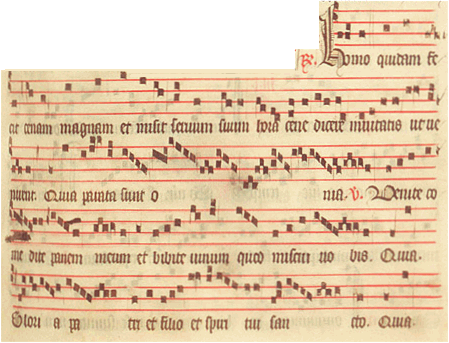 R. Homo quidam fe
cit cenam magnam et misit servum suum hora cene dicere invitatis ut ve
nirent. Quia parata sunt o nia. V. Venite co
me dite panem meum et bibite vinum quod miscui vo bis. Quia.
Glori a pa tri et filio et spiri tui san cto. Quia.